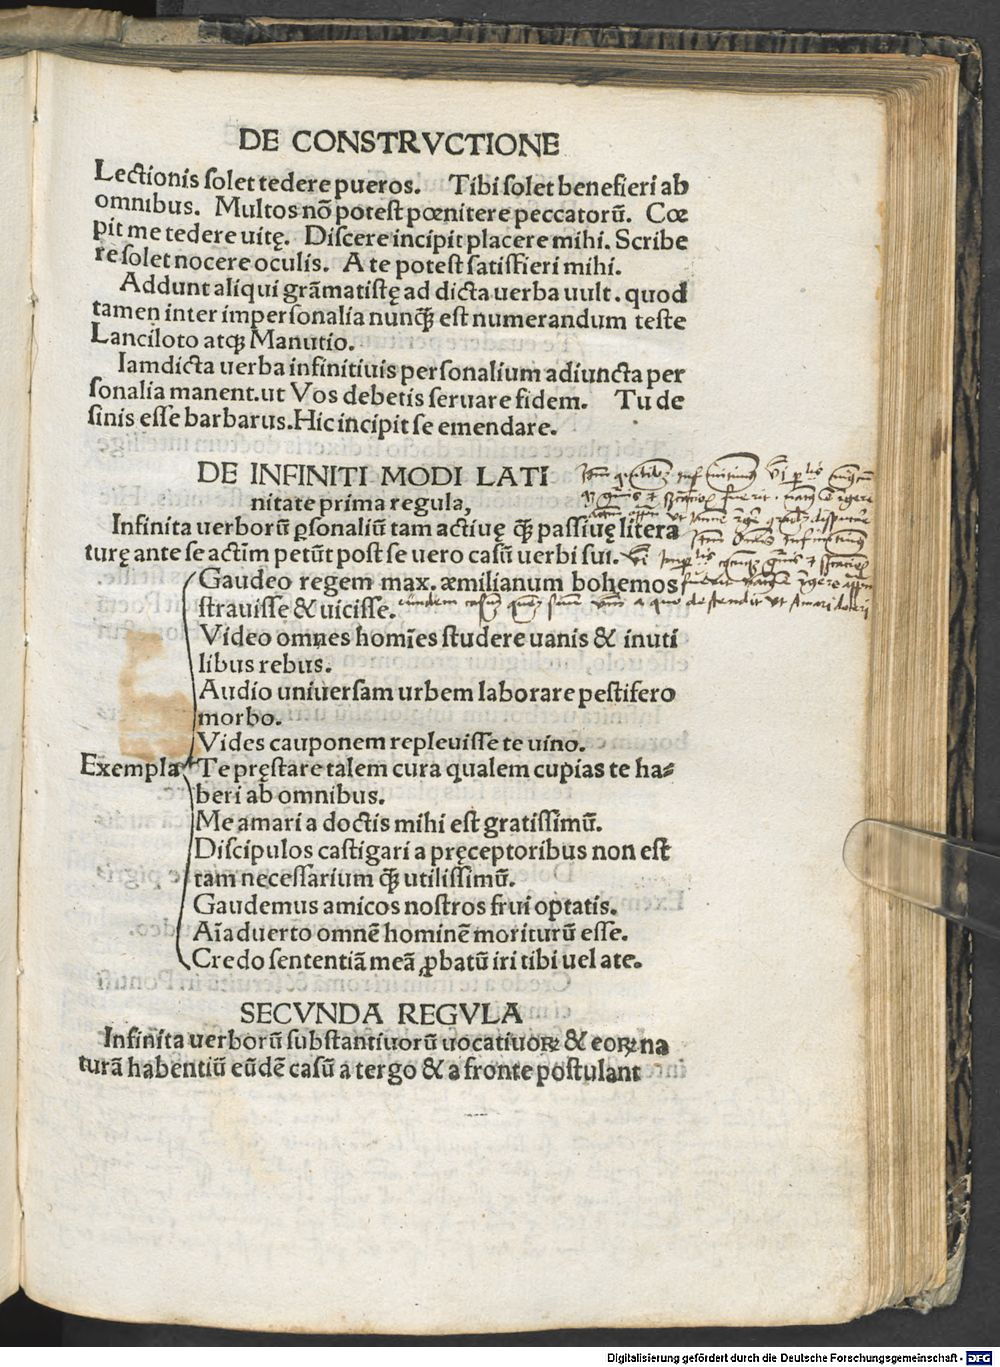 DE CONSTRVCTIONE
Lectionis solet tedere pueros. Tibi solet benefieri ab
omnibus. Multos nō potest pœnitere peccatorū. Cœ
pit me tedere uitę. Discere incipit placere mihi. Scribe
re solet nocere oculis. A te potest satisfieri mihi.
Addunt aliqui grāmatistę ad dicta uerba uult. quod
tamen inter impersonalia nunꝗ̃ est numerandum teste
Lanciloto atqꝫ Manutio.
Iamdicta uerba infinitiuis personalium adiuncta per
sonalia manent. ut Vos debetis seruare fidem. Tu de
sinis esse barbarus. Hic incipit se emendare.
DE INFINITI MODI LATI
nitate prima regula,
Infinita uerborū ꝑsonaliū tam actiuę ꝗ̃ passiuę litera
turę ante se actīm petūt post se uero casū uerbi sui.
Gaudeo regem max. æmilianum bohemos
strauisse & uicisse.
Video omnes homīes studere uanis & inuti
libus rebus.
Audio uniuersam urbem laborare pestifero
morbo.
Vides cauponem repleuisse te uino.
Exempla Te pręstare talem cura qualem cupias te ha⸗
beri ab omnibus.
Me amari a doctis mihi est gratissimū.
Discipulos castigari a pręceptoribus non est
tam necessarium ꝗ̃ utilissimū.
Gaudemus amicos nostros frui optatis.
Aīaduerto omnē hominē moriturū esse.
Credo sententiā meā ꝓbatū iri tibi uel a te.
SECVNDA REGVLA
Infinita uerborū substantiuorū uocatiuoꝝ & eoꝝ na
turā habentiū eūdē casū a tergo & a fronte postulant
Digitalisierung gefördert durch die Deutsche Forschungsgemeinschaft - DFG